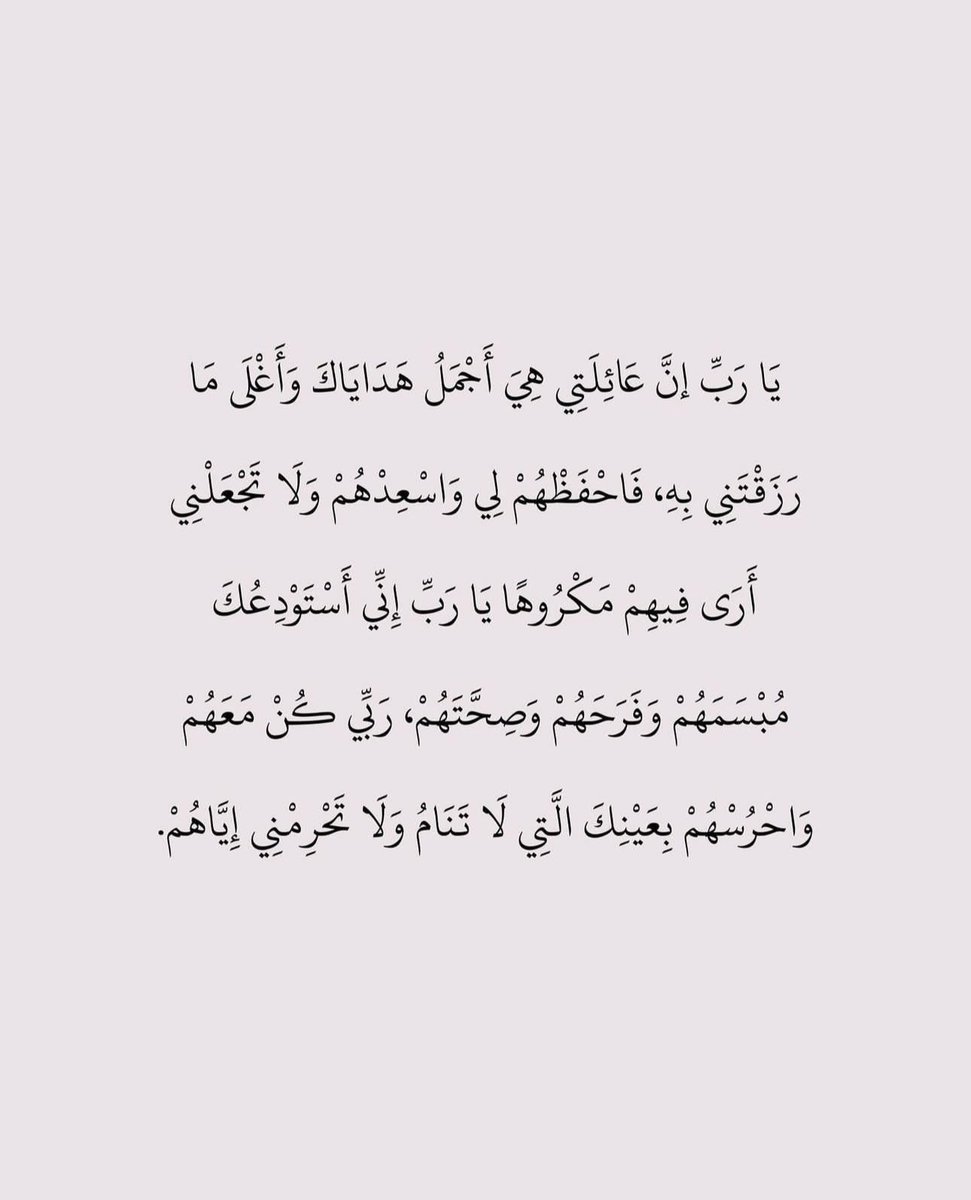 يَا رَبِّ إنَّ عَائِلَتِي هِيَ أَجْمَلُ هَدَايَاكَ وَأَغْلَى مَا
رَزَقْتَنِي بِهِ، فَاحْفَظْهُمْ لِي وَاسْعِدْهُمْ وَلَا تَجْعَلْنِي
أَرَى فِيهِمْ مَكْرُوهًا يَا رَبِّ إِنِّي أَسْتَوْدِعُكَ
مُبْسَمَهُمْ وَفَرَحَهُمْ وَصِحَّتَهُمْ، رَبِّي كُنْ مَعَهُمْ
وَاحْرُسْهُمْ بِعَيْنِكَ الَّتِي لَا تَنَامُ وَلَا تَحْرِمْنِي إِيَّاهُمْ.